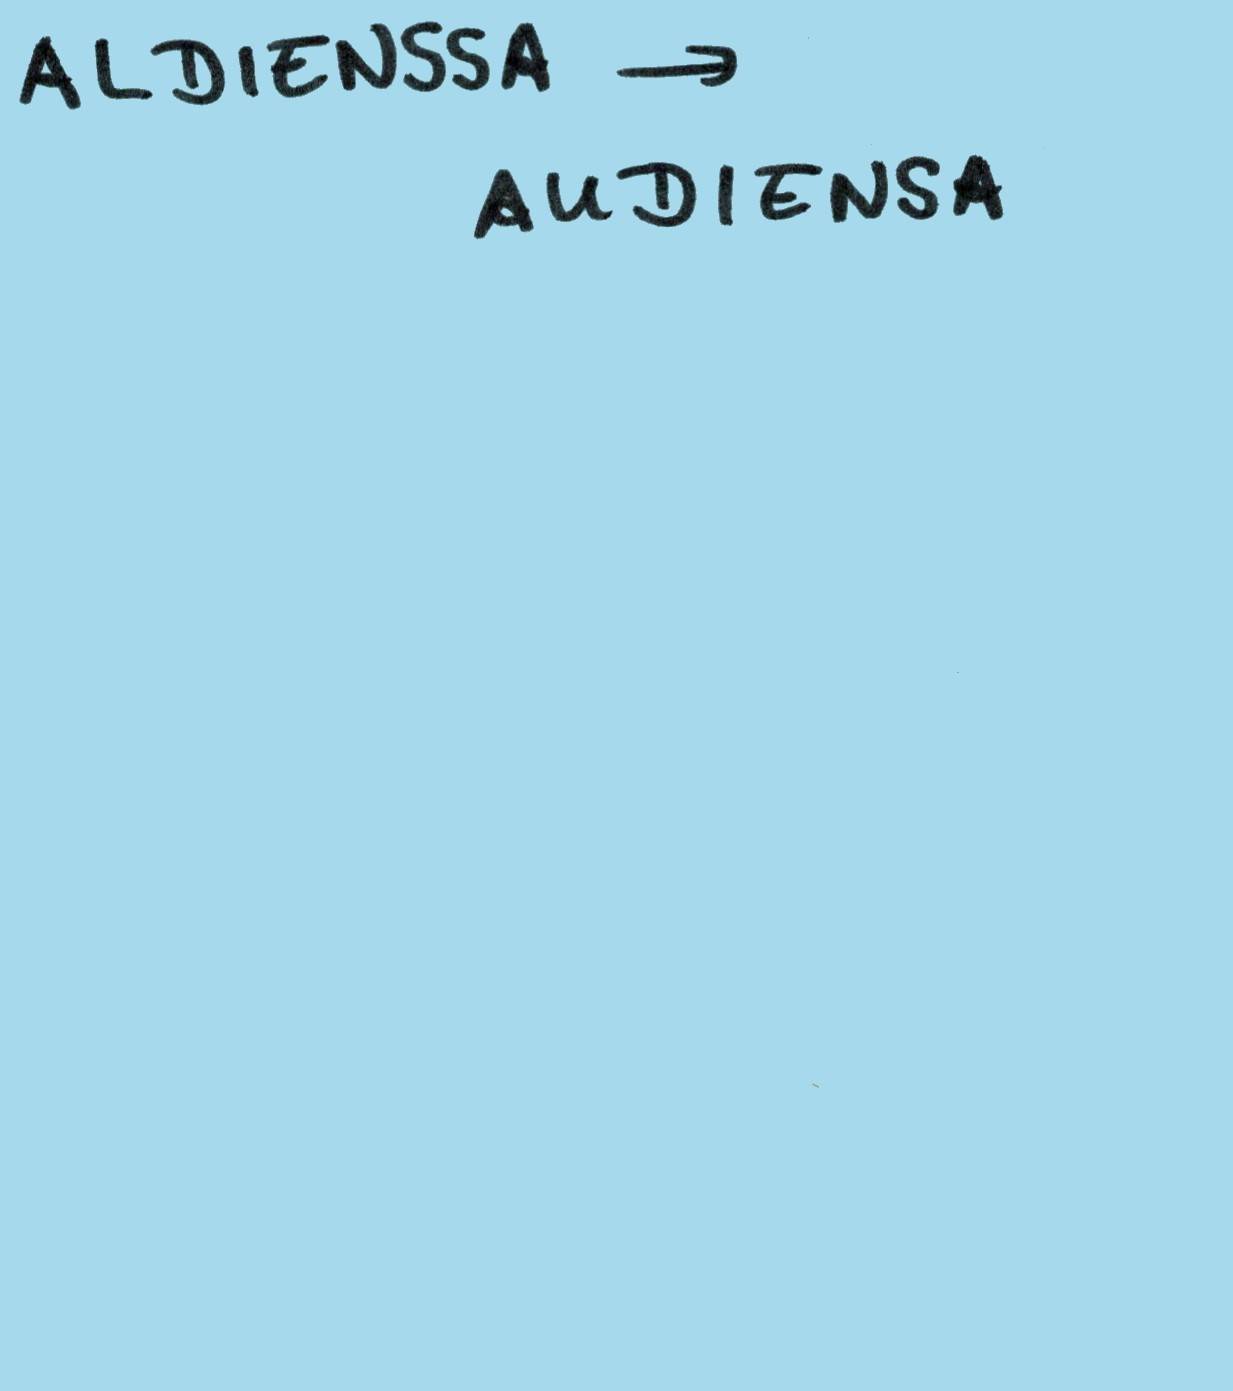 ALDIENSSA →
AUDIENSA